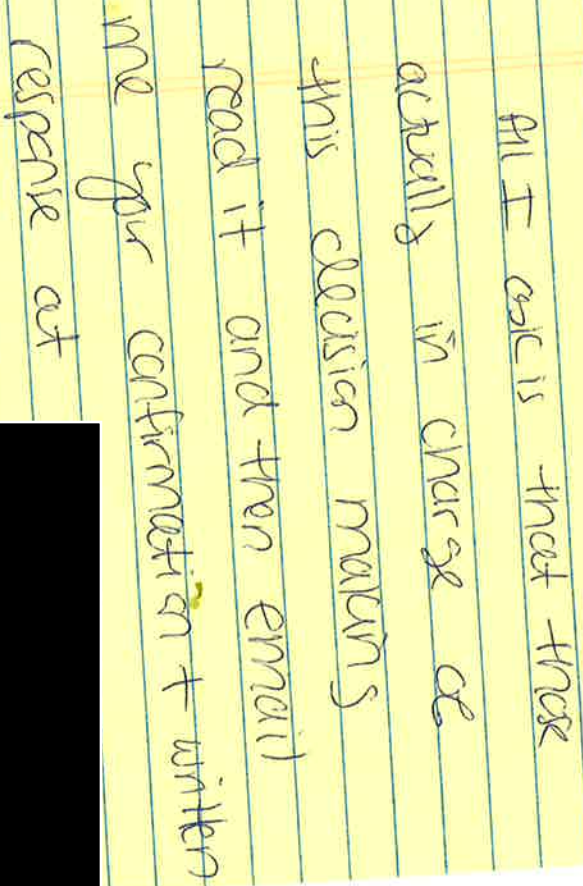 All I ask is that those
actually in charge of
this decision making
read it and then email
me your confirmation + written
response at